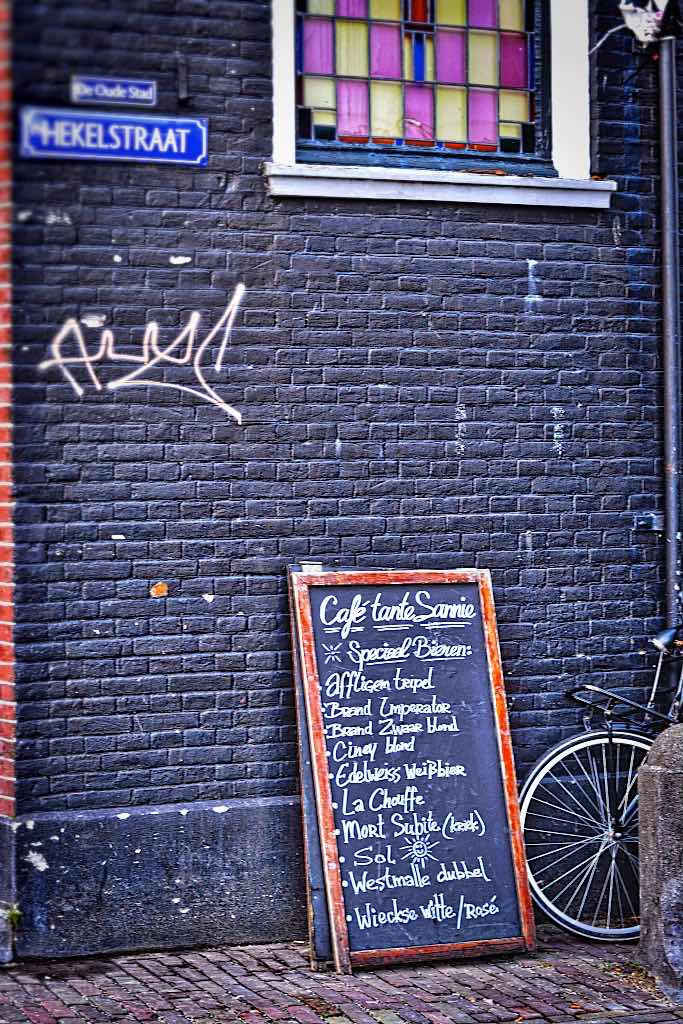 De Oude Stad
HEKELSTRAAT
Café tante Sannie
Speciaal Bieren:
Affligem tripel
• Brand Imperator
• Brand Zwaar blond
• Ciney blond
• Edelweiss Weißbier
• La Chouffe
• Mort Subite (kriek)
• Sol
• Westmalle dubbel
• Wieckse witte/Rosé